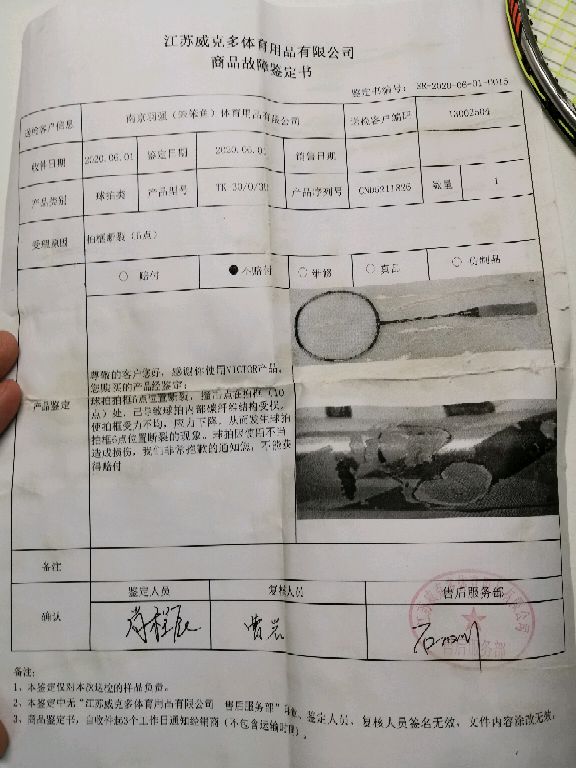 江苏威克多体育用品有限公司
商品故障鉴定书
鉴定书编号: SR-2020-06-01-0015
送检客户信息 南京羽强(笨笨鱼)体育用品有限公司 送检客户编码 13002504
收件日期 2020.06.01 鉴定日期 2020.06.01 销售日期
产品类别 球拍类 产品型号 TK-30/O/3U 产品序列号 数量 1
受理原因 拍框断裂(6点)
○ 赔付 ●不赔付 ○维修 ○真品 ○仿制品
产品鉴定
尊敬的客户您好,感谢你使用VICTOR产品,
您购买的产品经鉴定:
球拍拍框6点位置断裂,撞击点在拍框(10
点)处,已导致球拍内部碳纤维结构受损,
使拍框受力不均,应力下降,从而发生球拍
拍框6点位置断裂的现象。球拍属使用不当
造成损伤,我们非常抱歉的通知您,不能获
得赔付
备注
鉴定人员 复核人员 售后服务部
确认
售后服务部
备注:
1、本鉴定仅对本次送检的样品负责。
2、本鉴定中无"江苏威克多体育用品有限公司 售后服务部"、鉴定人员、复核人员签名无效,文件内容涂改无效;
3、商品鉴定书,自收件起3个工作日通知经销商(不包含运输时间)。